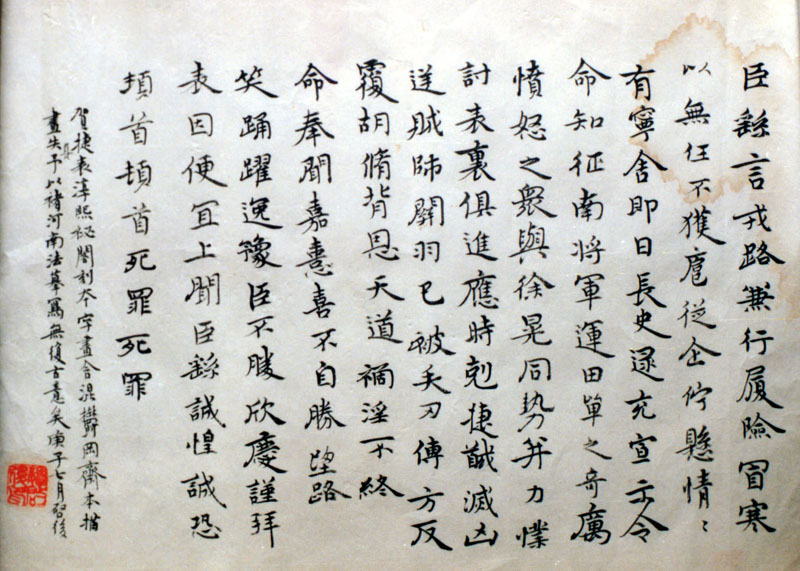 臣繇言戎路兼行履險冒寒
以無任不獲扈從企佇懸情〻
有寧舍即日長史逯充宣示令
命知征南將軍運田單之奇厲
憤怒之衆與徐晃同勢并力撲
討表裏俱進應時剋捷馘滅凶
逆賊帥關羽已被矢刃傅方反
覆胡脩背恩天道禍淫不終
命奉聞嘉憙喜不自勝望路
笑踊躍逸豫臣不勝欣慶謹拜
表因便宜上聞臣繇誠惶誠恐
頓首頓首死罪死罪
賀捷表淳熙秘閣刻本字畫含混鬱岡齋本描
畫失予以褚河南法摹寫無復古意矣庚子七月